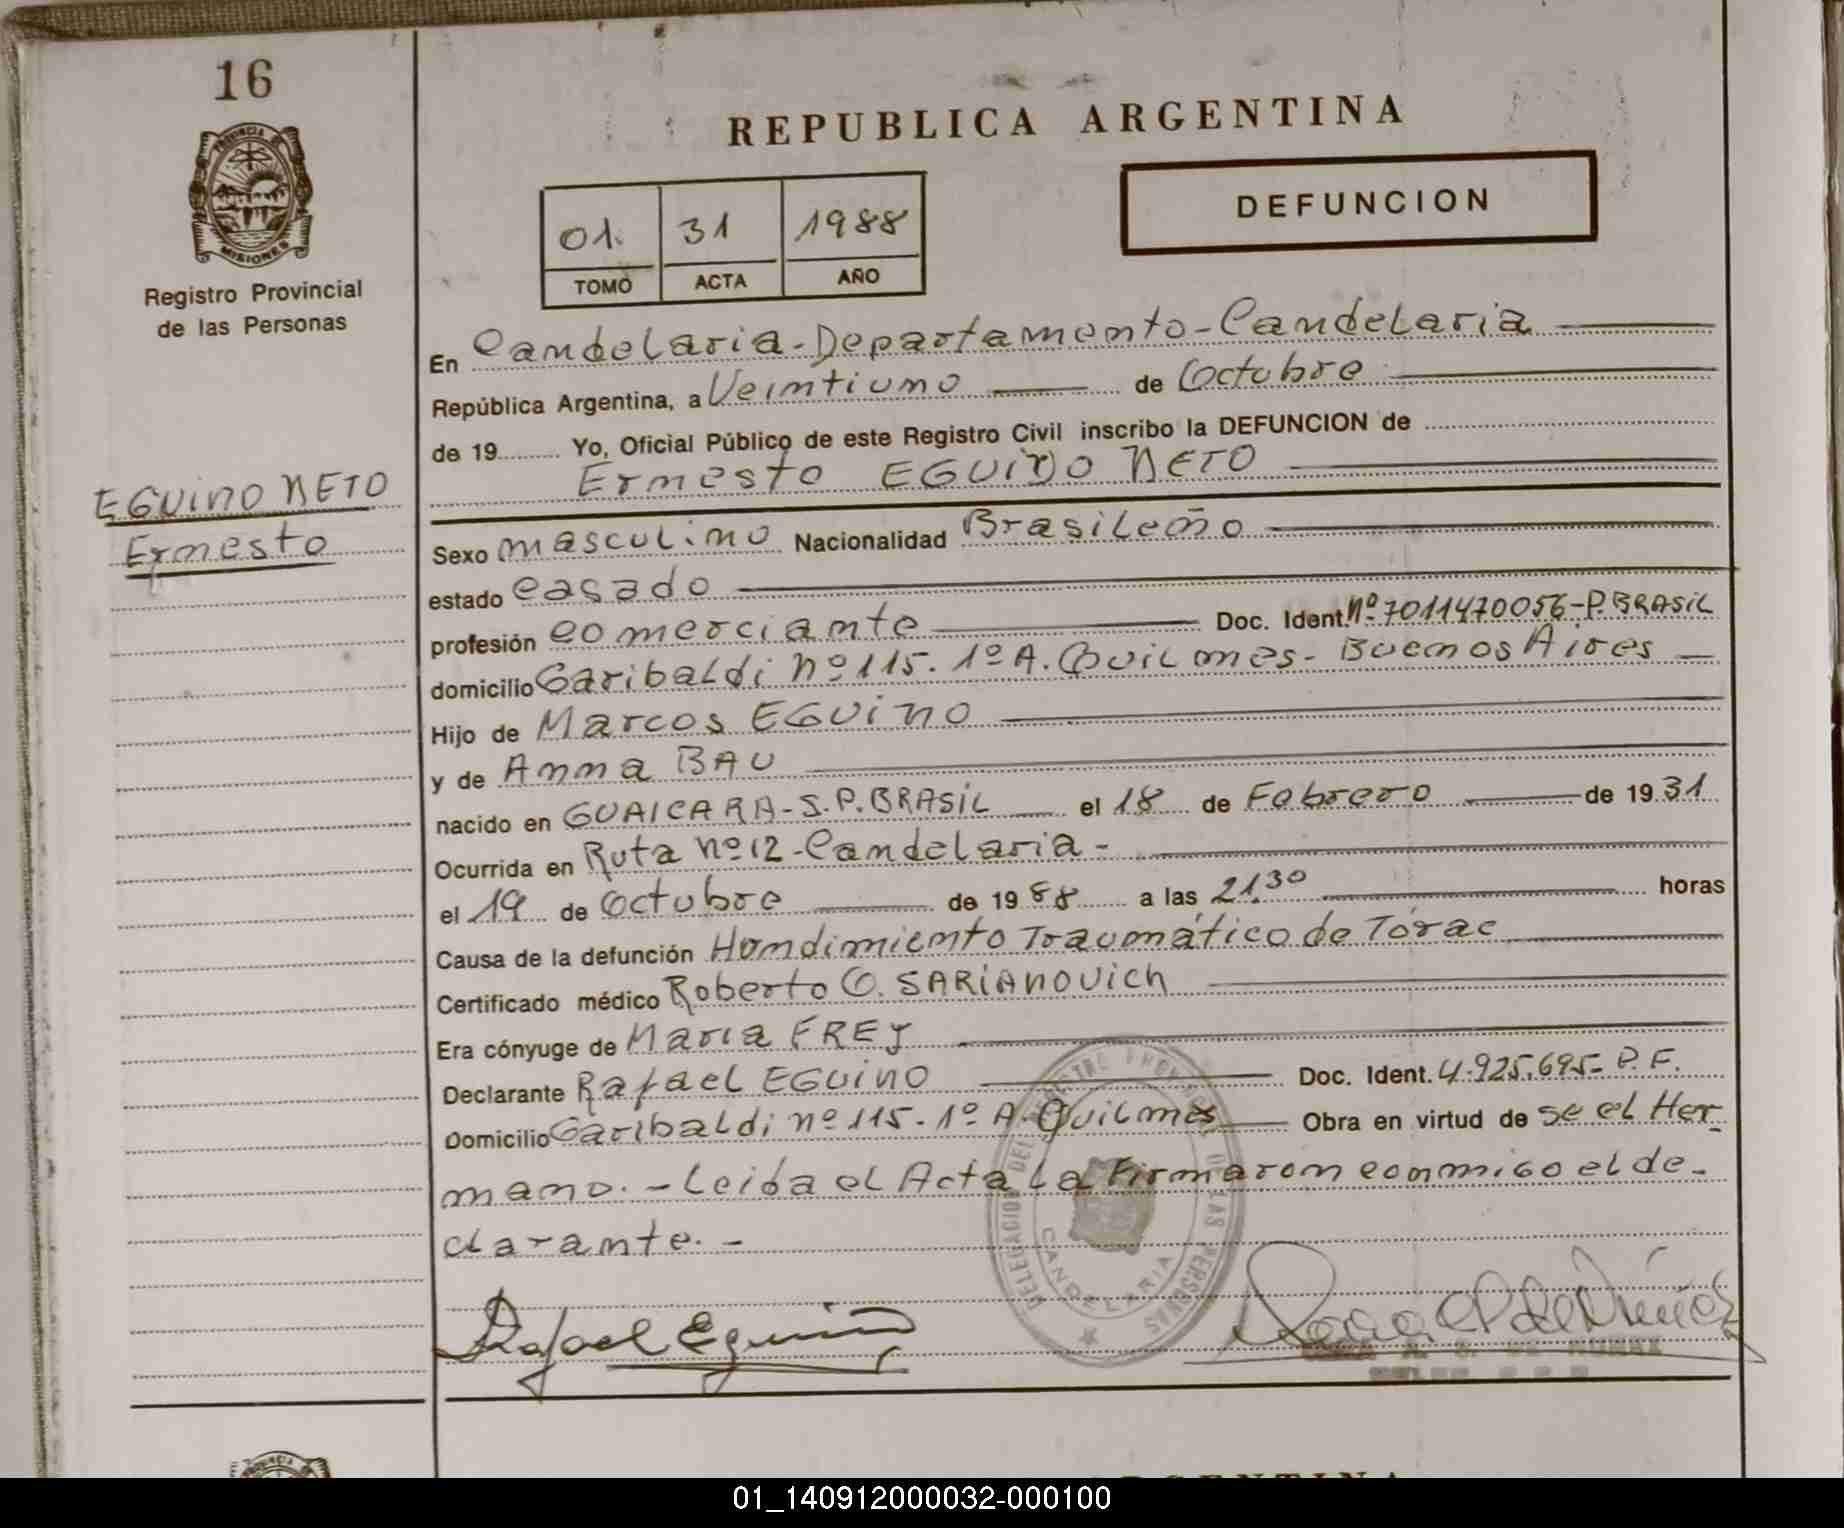 16
PROVINCIA DE
MISIONES
Registro Provincial
de las Personas
REPUBLICA ARGENTINA
DEFUNCION
01. 31 1988
TOMO ACTA AÑO
En Candelaria-Departamento-Candelaria
República Argentina, a Veintiuno de Octubre
de 19 Yo, Oficial Público de este Registro Civil inscribo la DEFUNCION de
Ernesto EGUINO NETO
EGUINO NETO
Ernesto
Sexo masculino Nacionalidad Brasileño
estado casado
profesión comerciante Doc. Ident. Nº 7011470056-P.BRASiL
domicilio Garibaldi Nº 115. 1º A. Quilmes- Buenos Aires
Hijo de Marcos EGUiNO
y de Anna BAU
nacido en GUAICARA-S.P.BRASiL el 18 de Febrero de 19 31
Ocurrida en Ruta Nº 12-Candelaria-
el 19 de Octubre de 19 88 a las 21.30 horas
Causa de la defunción Hundimiento Traumático de Tórac
Certificado médico Roberto O. SARiANOVicH
Era cónyuge de María FREY
Declarante Rafael EGUiNO Doc. Ident. 4.925.695- P.F.
Domicilio Garibaldi Nº 115-1º A-Quilmes Obra en virtud de se el Her-
mano.-Leida el Acta La Firmaron conmigo el de-
clarante.-
DELEGACION DEL REGISTRO PROVINCIAL DE LAS PERSONAS
CANDELARIA
Rafael Eguino
DE NUÑEZ
ARGENTINA
01_140912000032-000100